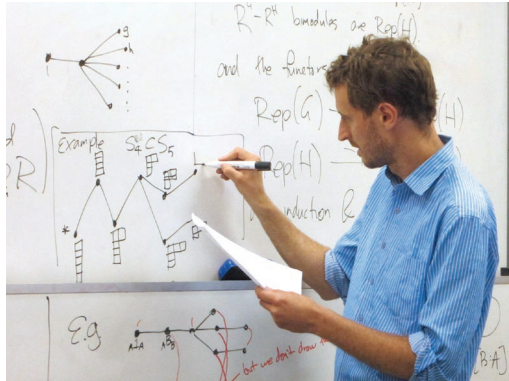 R^G - R^H bimodules are Rep(H).
and the functors
Rep(G)
Rep(H)
induction &
R)
1
g
h
Example S_4 ⊂ S_5
*
E.g
but we don't draw
[B:A]